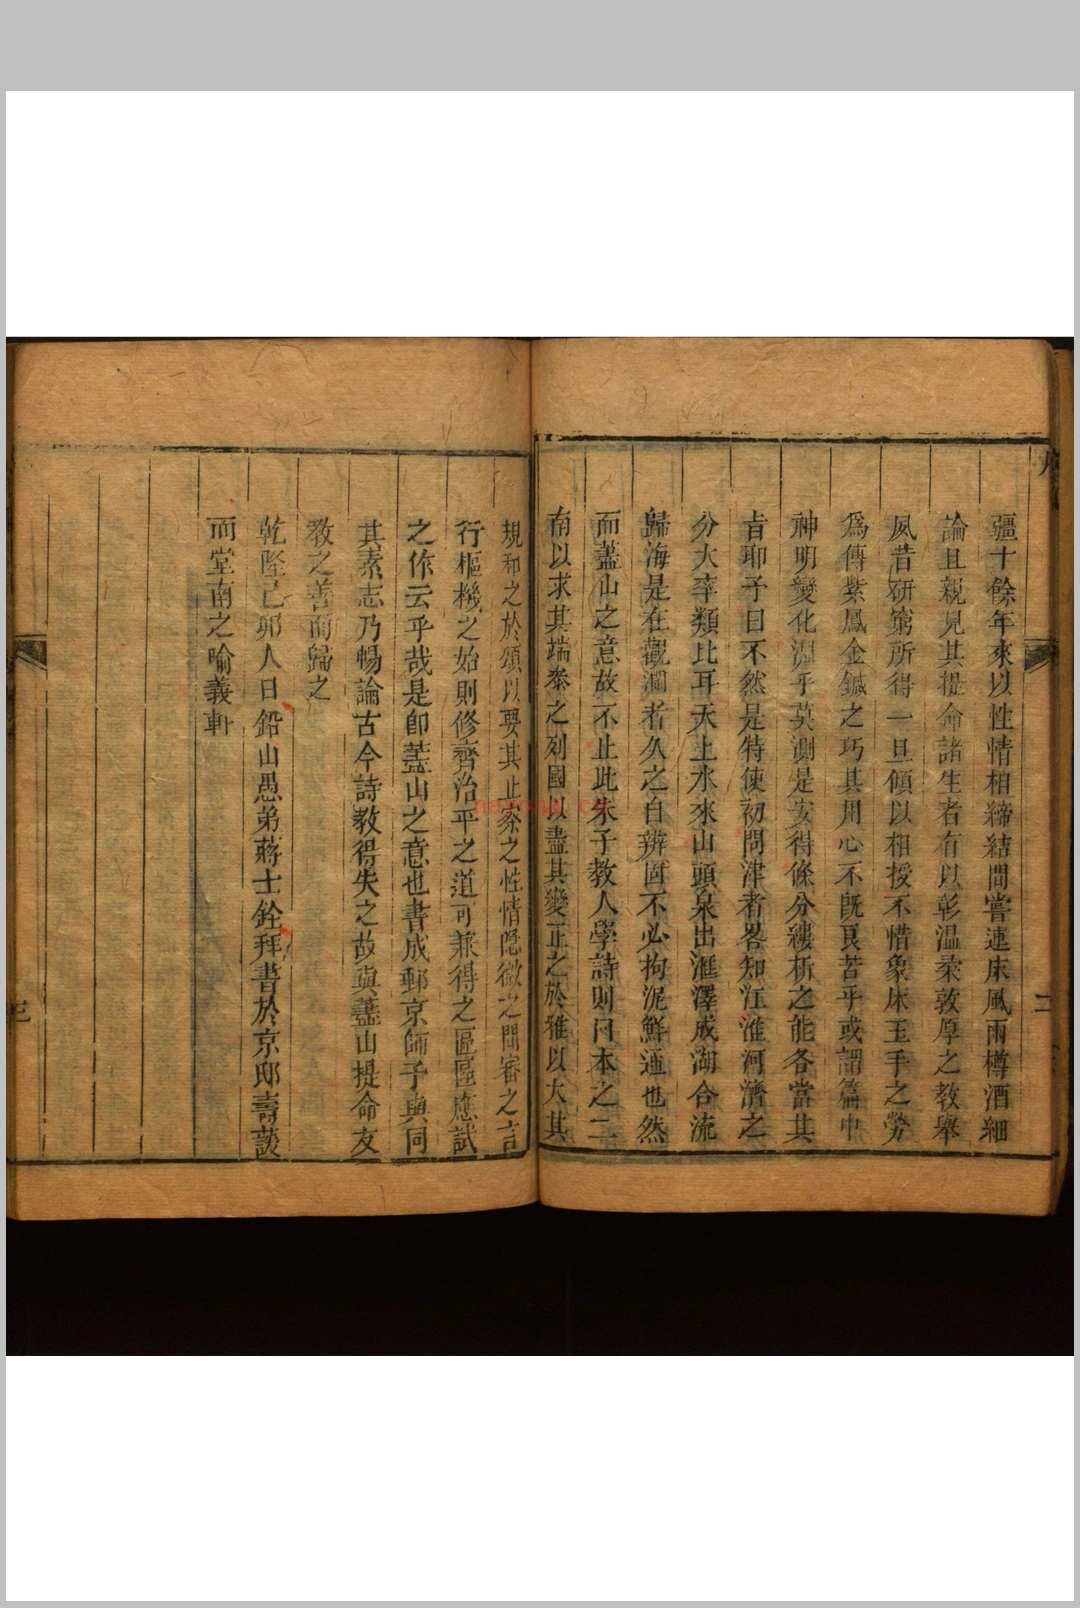 疆十餘年來以性情相締結間嘗連床風雨樽酒細
論且親見其提命諸生者有以彰温柔敦厚之教舉
夙昔研窮所得一旦傾以相授不惜象床玉手之勞
爲傳紫鳳金鍼之巧其用心不既良苦乎或謂篇中
神明變化淵乎莫測是安得條分縷析之能各當其
旨耶予曰不然是特使初問津者畧知江淮河濟之
分大率類比耳天上水來山頭泉出滙澤成湖合流
歸海是在觀瀾者久之自辨固不必拘泥鮮通也然
而藎山之意故不止此朱子教人學詩則曰本之二
南以求其端叅之列國以盡其變正之於雅以大其
規和之於頌以要其止察之性情隱微之間審之言
行樞機之始則修齊治平之道可兼得之區區應試
之作云乎哉是卽藎山之意也書成郵京師予與同
其素志乃暢論古今詩教得失之故與藎山提命友
教之善而歸之
乾隆己卯人日鉛山愚弟蔣士銓拜書於京邸壽萲
而堂南之喻義軒
序
二
三
nayona.cn